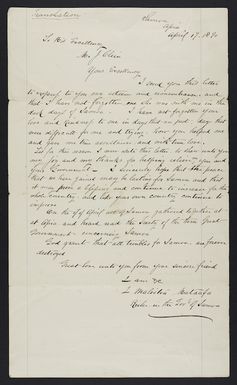 Translation
Samoa
Apia
April 17. 1890
To His Excellency
Mr. J Klein
Your Excellency
I send you this letter
to express to you our esteem and remembrance, and
that I have not forgotten one who was with me in the
dark days of Samoa. I have not forgotten your
love and kindness to me in days that are past; days that
were difficult for me and trying. Now you helped me
and gave me assistance and with true love.
So for this reason I now write this letter to show unto you
my joy and my thanks for helping
your Government. I sincerely hope that the peace
that we have found may be lasting for Samoa and that
it may prove a blessing and continue to increase for the
whole country and like your own country continue to
improve
On the of April all of Samoa gathered together at
at Apia and heard read the Treaty of the three Great
Governments concerning Samoa
God grant that all troubles for Samoa are forever
destroyed
Great love unto you from your sincere friend
I am &c
I Malietoa Mataafa
Ruler in the Gov. of Samoa